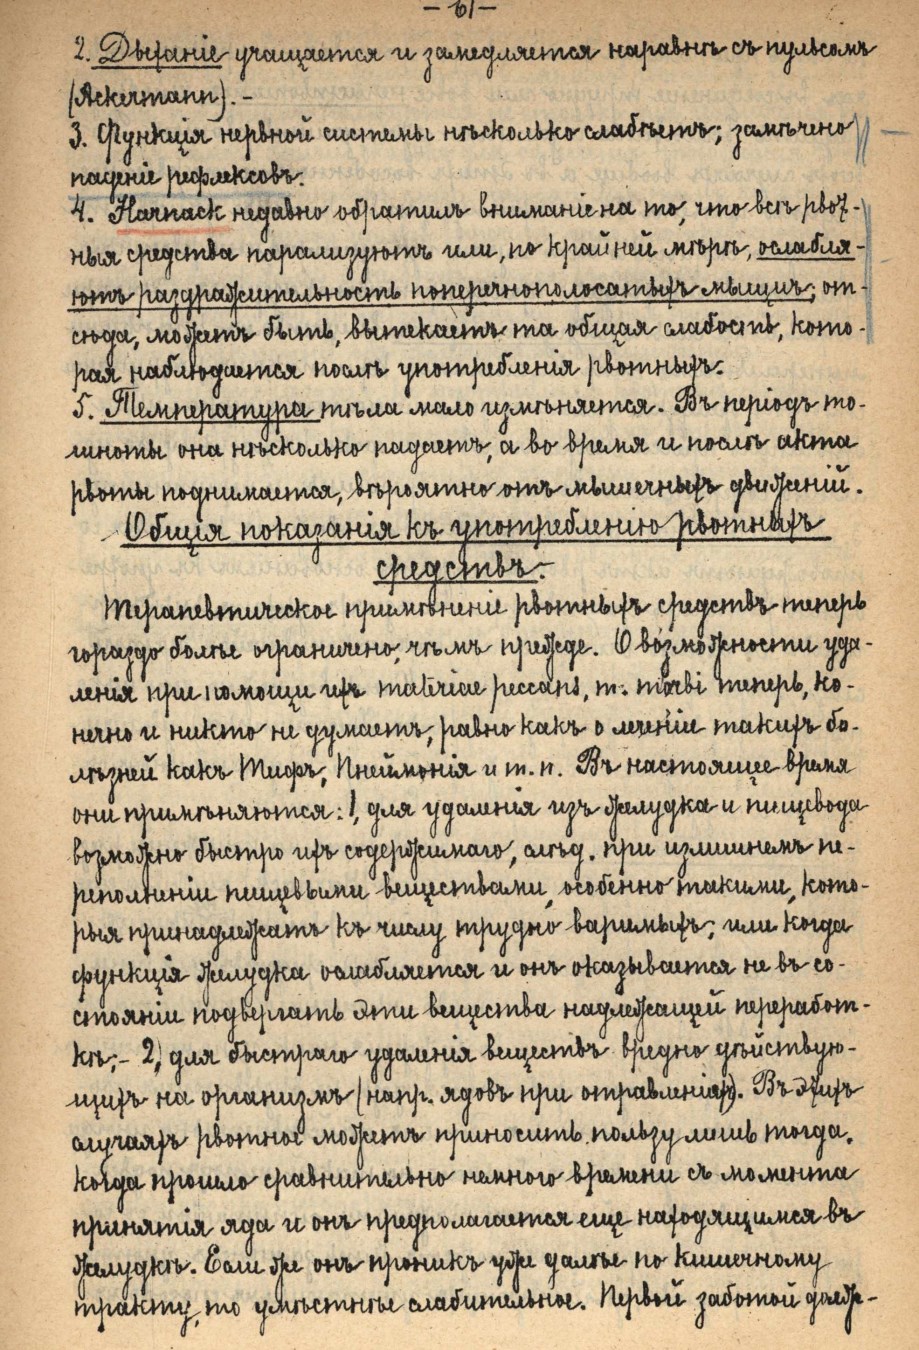 — 61 —
2. Дыханіе учащается и замедляется наравнѣ съ пульсомъ
(Ackermann). –
3. Функція нервной системы нѣсколько слабѣетъ; замѣчено
паденіе рефлексовъ.
4. Harnack недавно обратилъ вниманіе на то, что всѣ рвот-
ныя средства парализуютъ или, по крайней мѣрѣ, ослабля-
ютъ раздражительность поперечнополосатыхъ мышцъ; от-
сюда, можетъ быть, вытекаетъ та общая слабость, кото-
рая наблюдается послѣ употребленія рвотныхъ.
5. Температура тѣла мало измѣняется. Въ періодъ то-
шноты она нѣсколько падаетъ, а во время и послѣ акта
рвоты поднимается, вѣроятно отъ мышечныхъ движеній.
Общія показанія къ употребленію рвотныхъ
средствъ.
Терапевтическое примѣненіе рвотныхъ средствъ теперь
гораздо болѣе ограничено, чѣмъ прежде. О возможности уда-
ленія при помощи ихъ materiae peccans, m. morbi теперь, ко-
нечно и никто не думаетъ, равно какъ о леченіи такихъ бо-
лѣзней какъ Тифъ, Пнеймонія и т. п. Въ настоящее время
они примѣняются: 1, для удаленія изъ желудка и пищевода
возможно быстро ихъ содержимаго, слѣд. при излишнемъ пе-
реполненіи пищевыми веществами, особенно такими, кото-
рыя принадлежатъ къ числу трудно варимыхъ; или когда
функція желудка ослабляется и онъ оказывается не въ со-
стояніи подвергать эти вещества надлежащей переработ-
кѣ; – 2, для быстраго удаленія веществъ вредно дѣйствую-
щихъ на организмъ (напр. ядовъ при отравленіяхъ). Въ этихъ
случаяхъ рвотное можетъ приносить пользу лишь тогда,
когда прошло сравнительно немного времени съ момента
принятія яда и онъ предполагается еще находящимся въ
желудкѣ. Если же онъ проникъ уже далѣе по кишечному
тракту, то умѣстнѣе слабительное. Первой заботой долж-